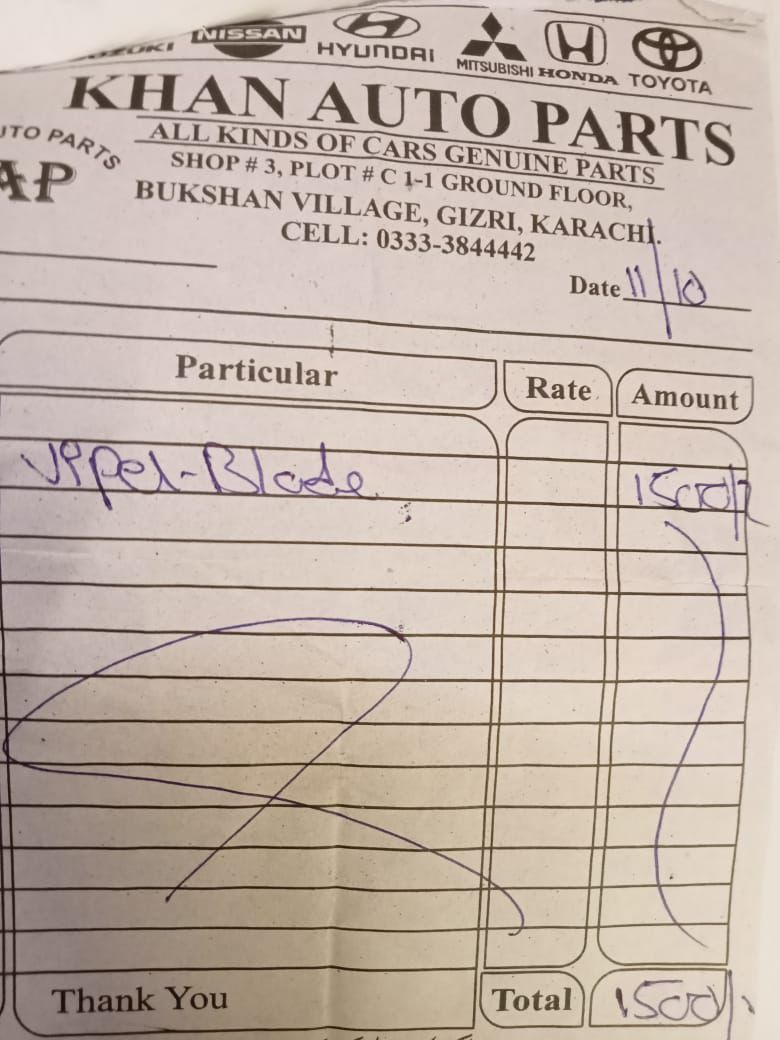 SUZUKI NISSAN HYUNDAI MITSUBISHI HONDA TOYOTA
KHAN AUTO PARTS
AUTO PARTS
AP
ALL KINDS OF CARS GENUINE PARTS
SHOP # 3, PLOT # C 1-1 GROUND FLOOR,
BUKSHAN VILLAGE, GIZRI, KARACHI.
CELL: 0333-3844442
Date 11/10
Particular Rate Amount
Viper-Blade 1500/-
Thank You Total 1500/-